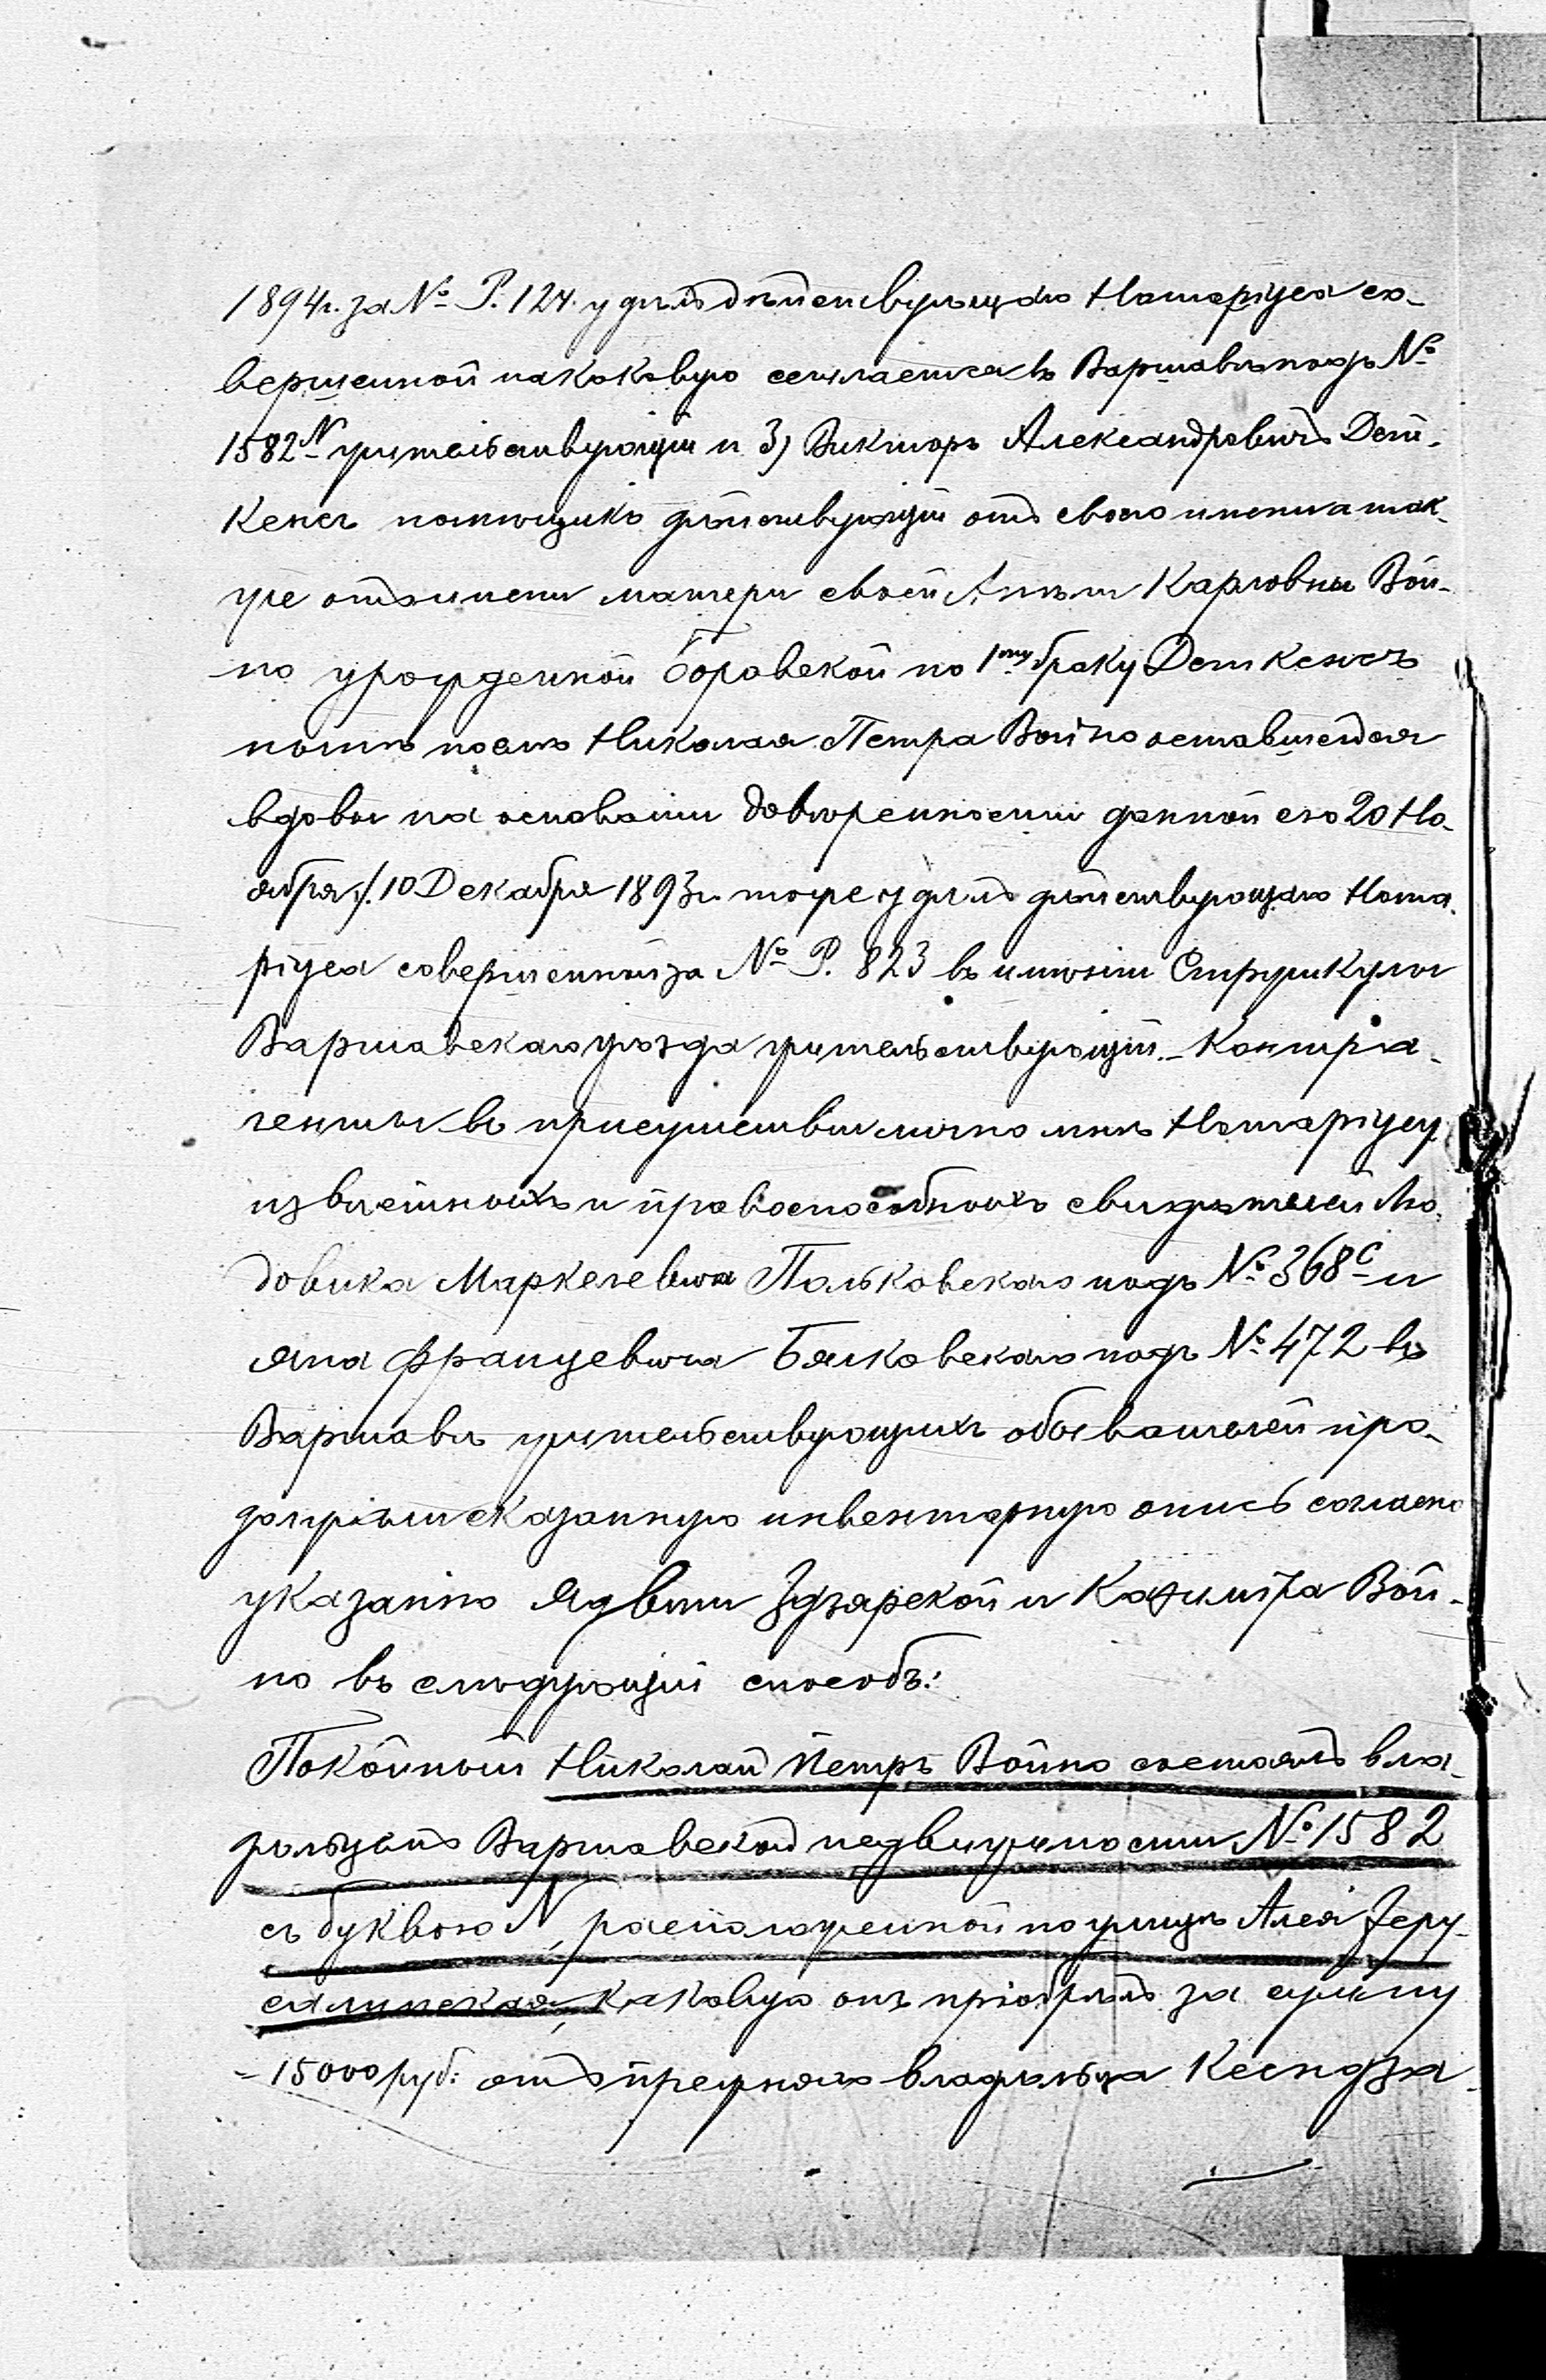 1894г. за № Р. 124. у дѣлъ дѣйствующаго Нотаріуса со-
вершенной на каковую ссылается въ Варшавѣ подъ №
1582 N жительствующій и 3) Викторъ Александровичъ Дет-
кенсъ помѣщикъ дѣйствующій отъ своего имени а так-
же отъ имени матери своей Анны Карловны Вой-
но урожденной Боровской по 1му браку Деткенсъ
нынѣ послѣ Николая Петра Войно оставшейся
вдовы на основаніи довѣренности данной ею 20 Но-
ября/10 Декабря 1893г. тоже у дѣлъ дѣйствующаго Нота-
ріуса совершенной за № Р. 823 въ имѣніи
Варшавскаго уѣзда жительствующій. – Контра-
генты въ присутствіи лично мнѣ Нотаріусу
извѣстныхъ и правоспособныхъ свидѣтелей Лю-
довика Маркелевича Польковскаго подъ № 368 С и
Яна Францевича Бялковскаго подъ № 472 въ
Варшавѣ жительствующихъ обывателей про-
должали сказанную инвентарную опись согласно
указанію Ядвиги Здзярской и Казиміра Вой-
но въ слѣдующій способъ:
Покойный Николай Петръ Войно состоялъ вла-
дѣльцемъ Варшавской недвижимости № 1582
съ буквою N, расположенной по улицѣ Алея Іеру-
салимская, каковую онъ пріобрѣлъ за сумму
15000 руб: отъ прежняго владѣльца Ксендза